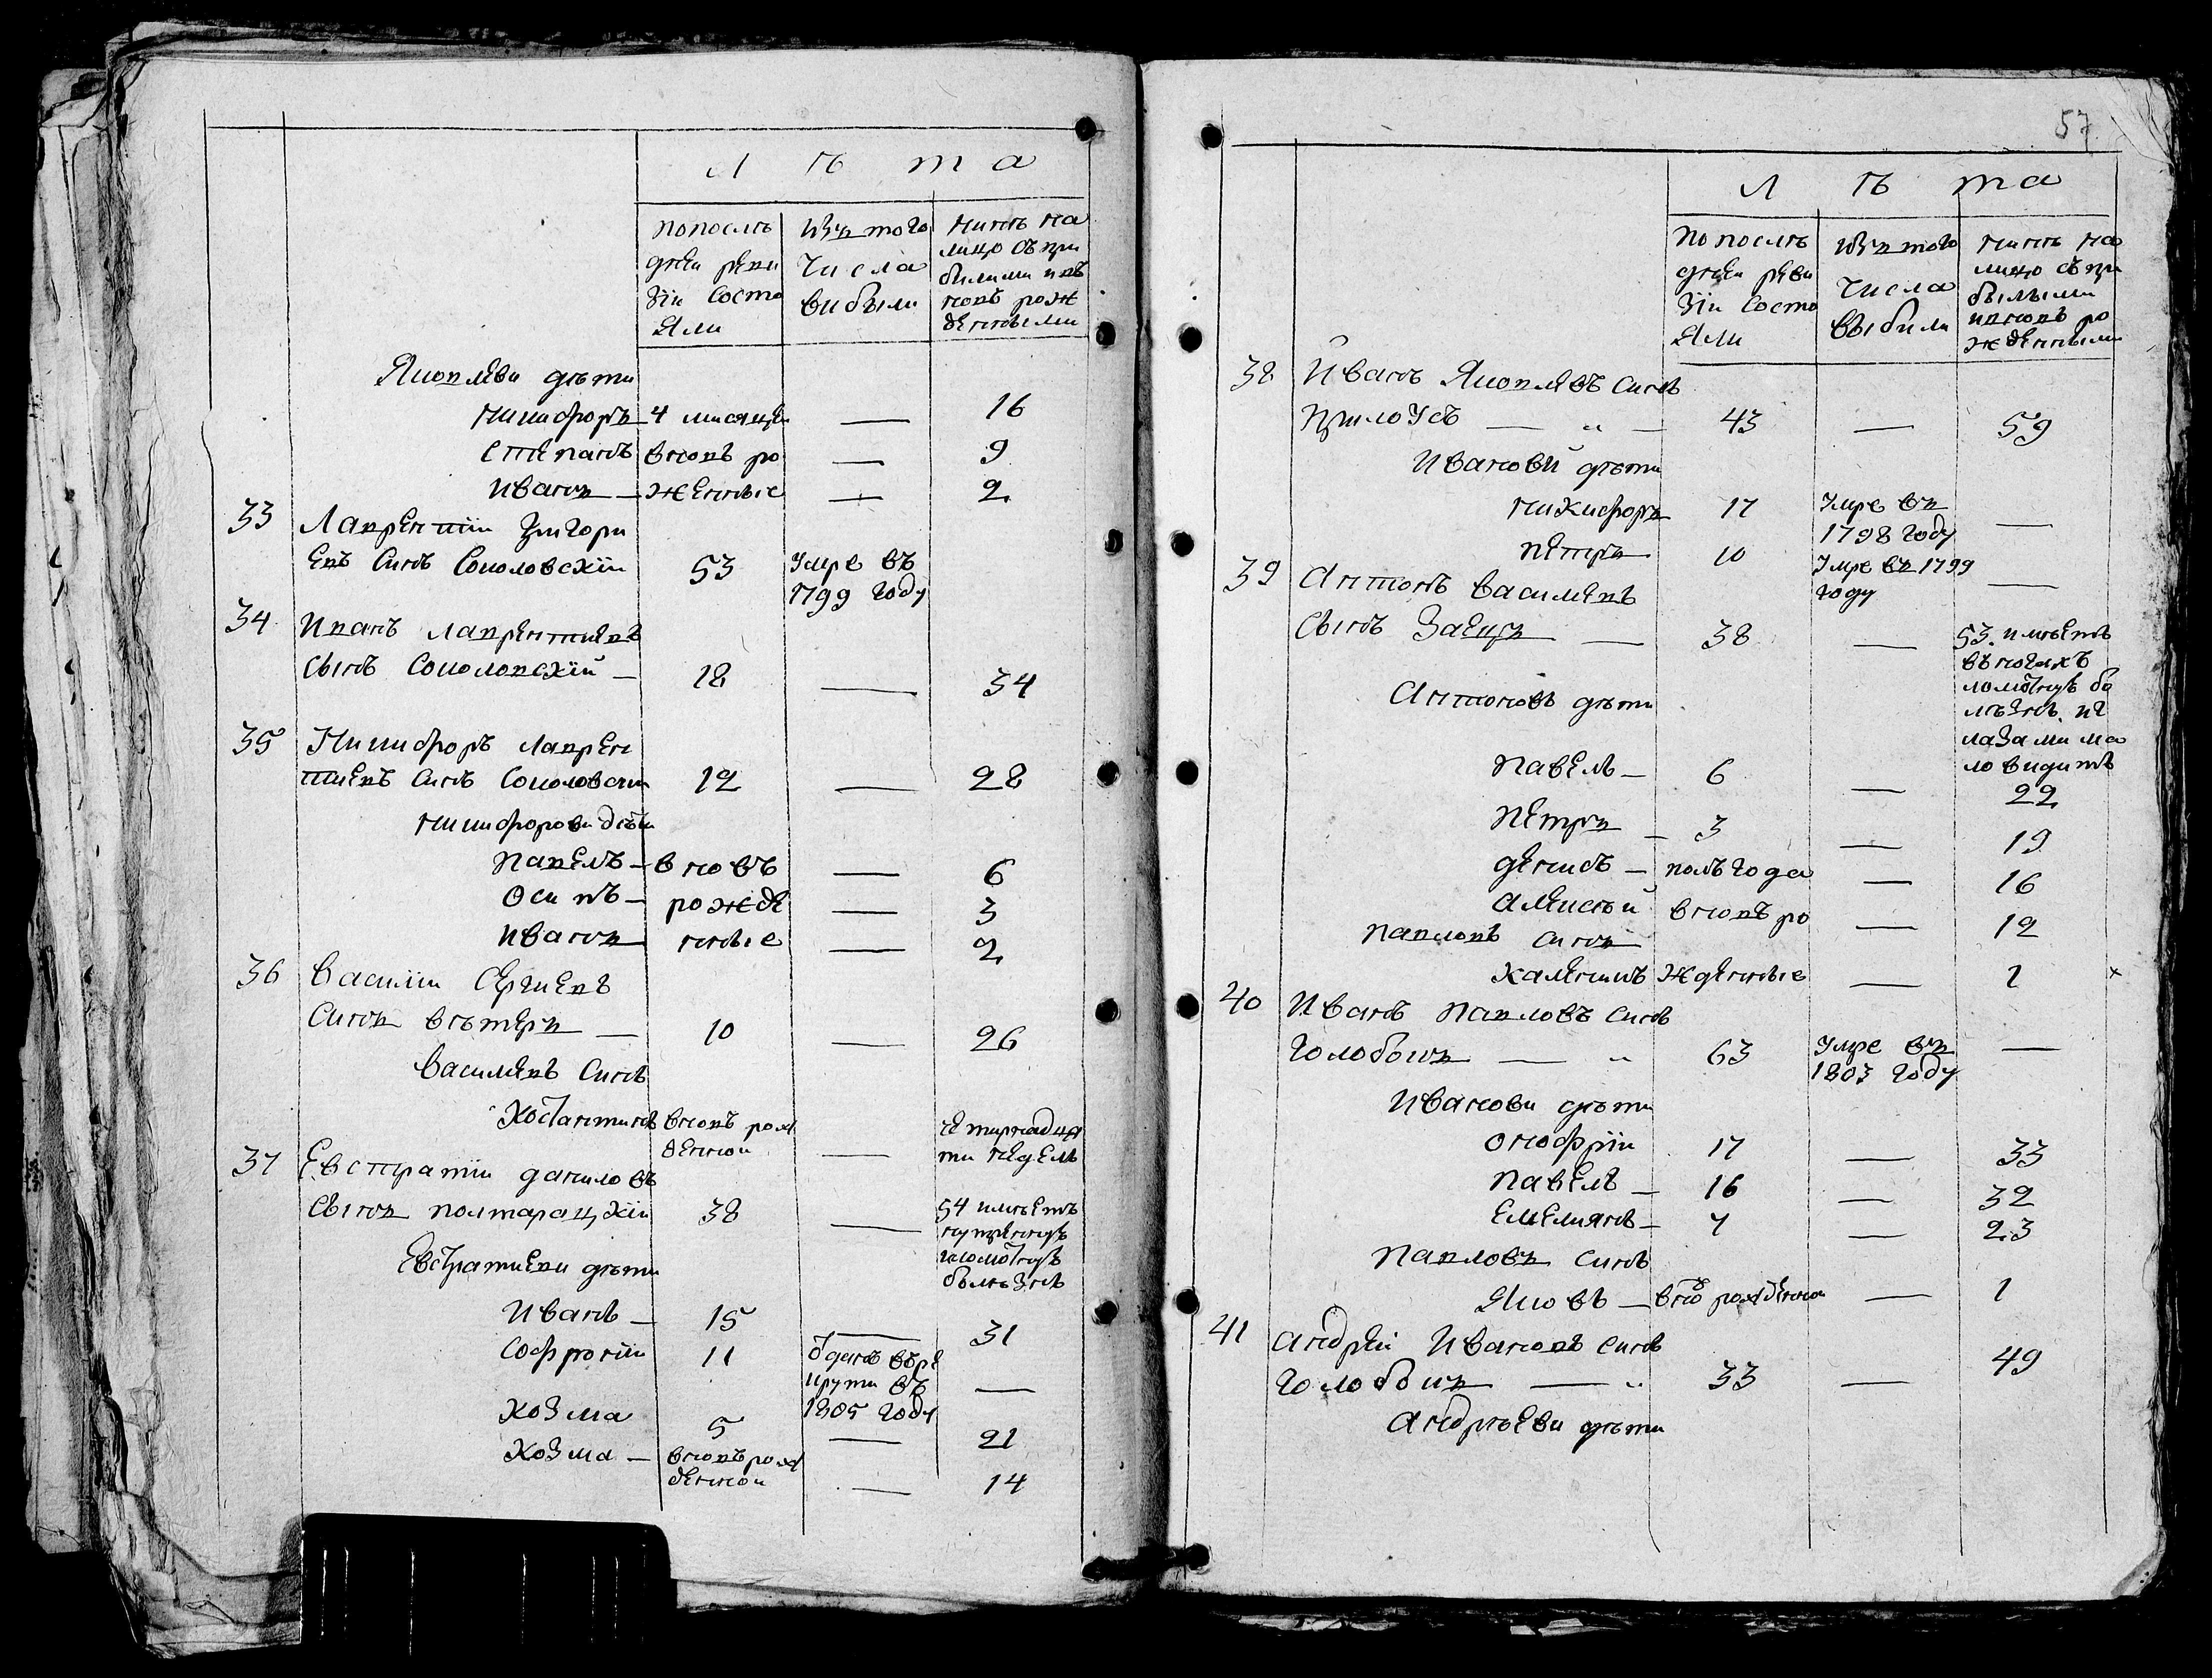 Лѣта
попослѣ
дней реви
зіи состо
яли
изъ того
числа
выбыли
нинѣ на
лицо съ при
былими и въ
новъ рож
денными
Яковлеви дѣти
Никифоръ 4 мисяцеи — 16
Степанъ вновъ ро — 9
Иванъ — жденные — 2
33 Лаврентіи Григори
евъ Синъ Соколовскіи 53 Умре въ
1799 Году
34 Иванъ Лаврентиевъ
Сынъ Соколовскій — 18 — 34
35 Никифоръ Лаврен
тиевъ Синъ Соколовски 12 — 28
Никифорови дѣти
Павелъ — вновъ — 6
Осипъ — рожде — 3
Иванъ — нные — 2
36 Василіи Сергиевъ
Синъ Вѣтеръ — 10 — 26
Василиевъ Синъ
Костантинъ вновъ рож
денной — четирнадця
ти недель
37 Евстратіи Даниловъ
Сынъ Полтарацкіи 38 — 54 имѣетъ
нутреннуъ
чломотнуъ
болѣзнь
Евстратиеви дѣти
Иванъ — 15 — 31
Софроніи 11 Одданъ въ ре
крути въ —
1805 году
Козма 5 — 21
Козма — вновъ рож
денной — 14
57
Лѣта
попослѣ
дней реви
зіи состо
яли
изъ того
числа
выбили
нинѣ на
лицо съ при
былыми
и вновъ ро
жденными
38 Иванъ Яковлевъ Синъ
Прилоусъ — 43 — 59
Ивановй дѣти
Никифоръ 17 Умре въ
1798 году —
Петръ 10 Умре въ 1799
году —
39 Антонъ Василиевъ
Сынъ Заецъ — 38 — 53. имѣетъ
въ ногахъ
ломотнуъ бо
лѣзнь. и г
лазами ма
ло видитъ
Антоновъ дѣти
Павелъ — 6 — 22
Петръ — 3 — 19
Денисъ — полъ года — 16
Алексѣй вновъ ро — 12
Павловъ Синъ
Каленикъ жденные — 1 ×
40 Иванъ Павловъ Синъ
Голобокъ — 63 Умре въ —
1803 году
Иванови дѣти
Онофріи 17 — 33
Павелъ — 16 — 32
Емелиянъ — 7 — 23
Павловъ Синъ
Яковъ — внов рожденной — 1
41 Андреи Ивановъ Синъ
Голобокъ — 33 — 49
Андрѣеви дѣти